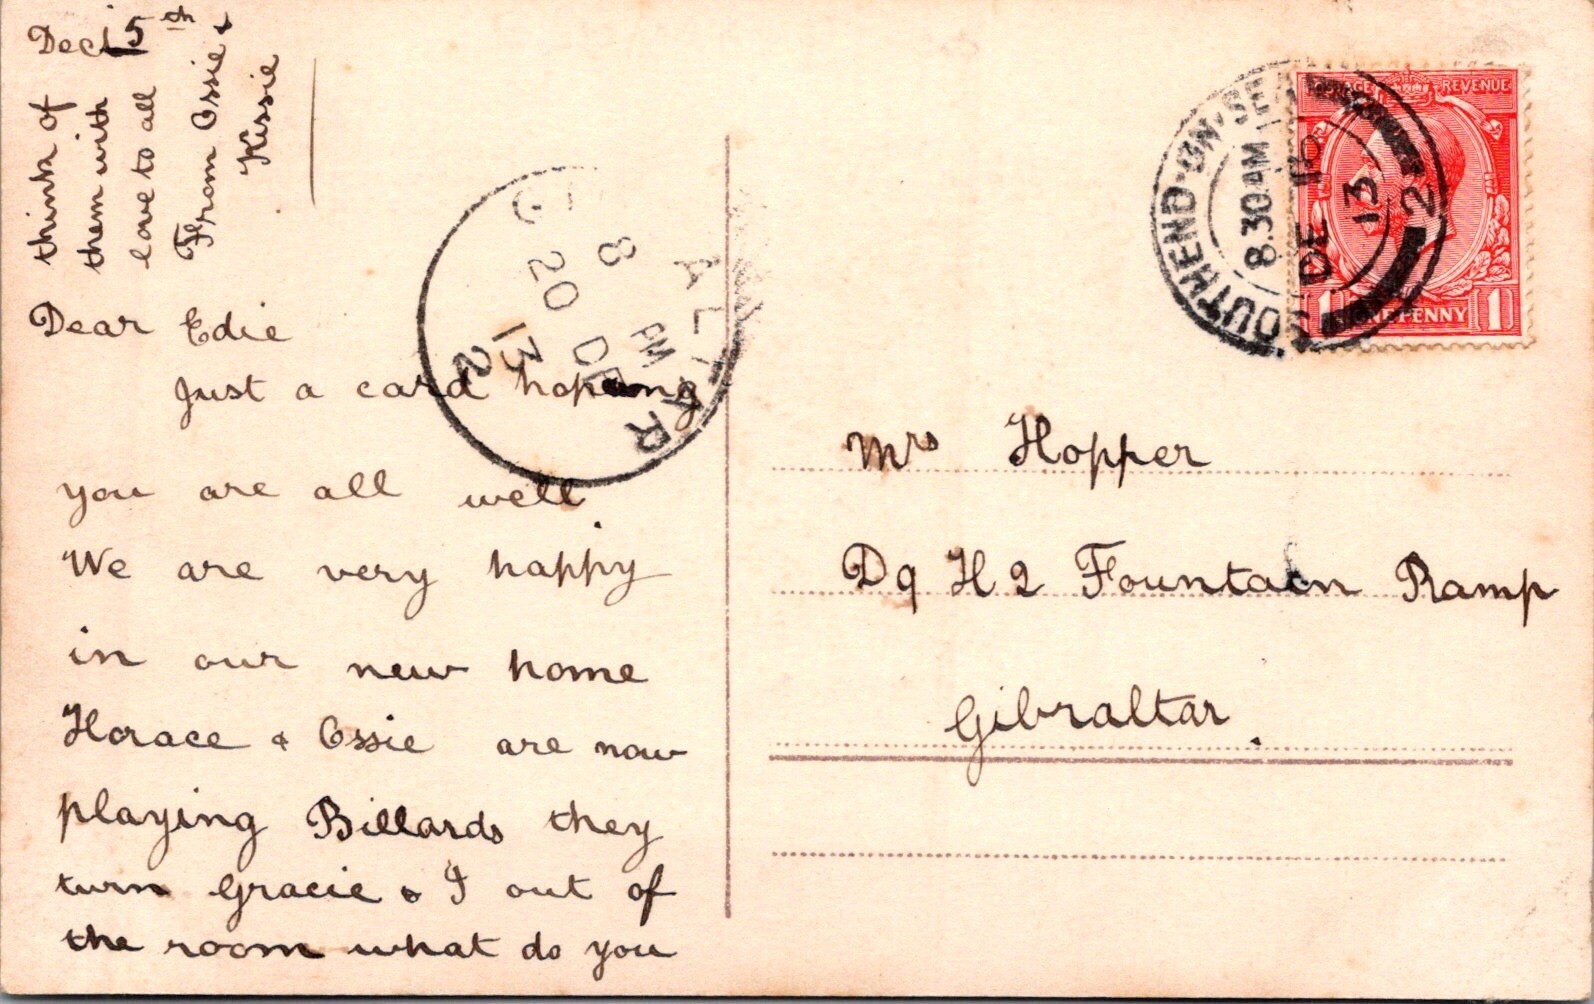 Dec 15th
Dear Edie
Just a card hoping
you are all well.
We are very happy
in our new home
Horace & Ossie are now
playing Billards they
turn Gracie & I out of
the room what do you
think of
them with
love to all
From Ossie &
Kissie
Mrs Hopper
Dq H2 Fountain Ramp
Gibraltar.
SOUTHEND-ON-SEA
8.30 AM
DE 16
13
2
POSTAGE REVENUE
1 ONE PENNY 1
GIBRALTAR
8 PM
20 DE
13
2